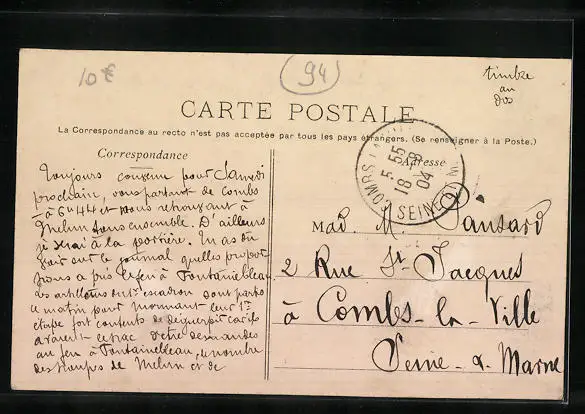 10€
94
timbre
au
dos
CARTE POSTALE
La Correspondance au recto n'est pas acceptée par tous les pays étrangers. (Se renseigner à la Poste.)
Correspondance
Adresse
COMBS LA
5 55
18 - 8
04
SEINE
Toujours convenu pour Samedi
prochain, vous partant de Combs
à 6h44 et nous retrouvant à
Melun tous ensemble. D'ailleurs
je serai à la portière. Tu as du
voir sur le journal quelles propor-
tions a pris le feu à Fontainebleau
Les artilleurs du escadron sont partis
ce matin pour Mormant leur 1re
étape fort contents de déguerpir car ils
avaient le trac d'être demandés
au feu à Fontainebleau, le nombre
des troupes de Melun et de
Mad. M. Pansard
2 Rue St Jacques
à Combs-la-Ville
Seine-&-Marne